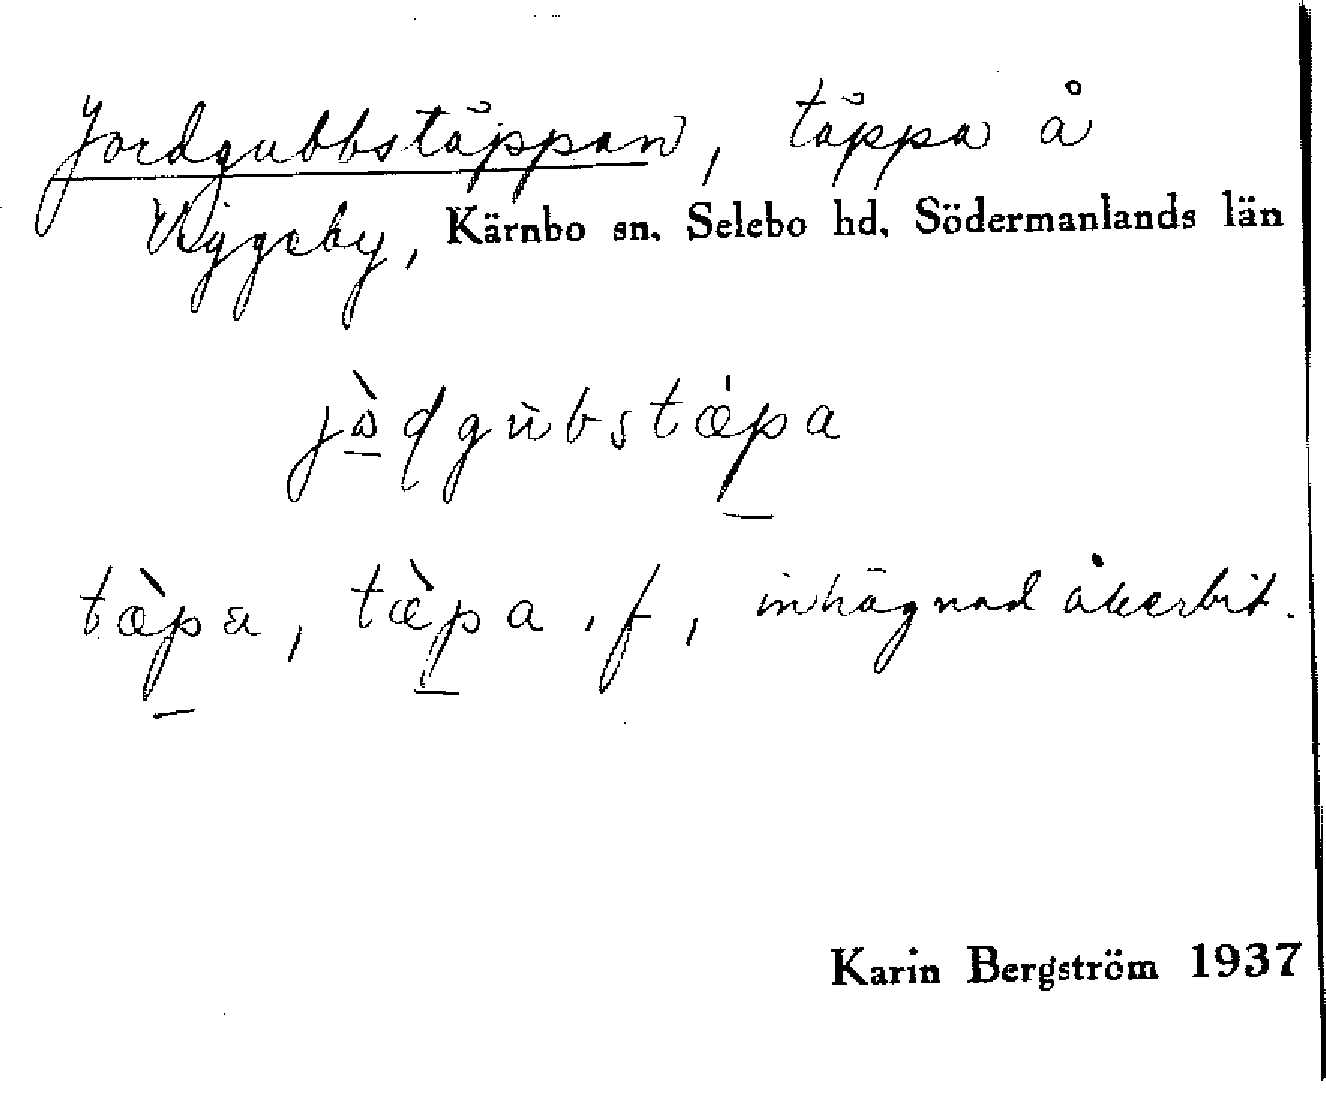 Jordgubbstäppan, täppa å
Viggeby, Kärnbo sn. Selebo hd. Södermanlands län
jòḏgùbstæ̍pa
tæ̀pa, tæ̀pa, f, inhägnad åkerbit.
Karin Bergström 1937